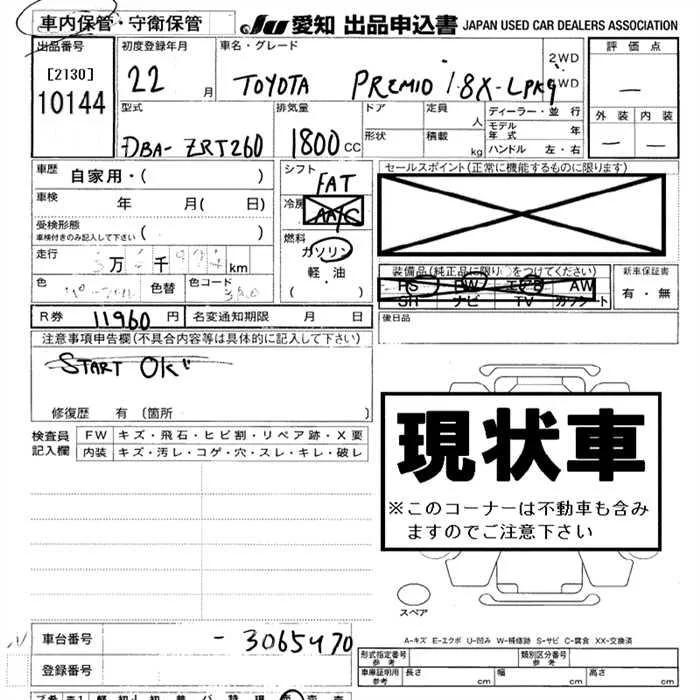 車内保管・守衛保管 JU 愛知 出品申込書 JAPAN USED CAR DEALERS ASSOCIATION
出品番号
[2130]
10144
初度登録年月
22 月
車名・グレード
TOYOTA PREMIO 1.8X-LPKg
2WD
4WD
評価点
—
外装 内装
— —
型式
DBA-ZRT260
排気量
1800 CC
ドア
形状
定員 人
積載 kg
ディーラー・並行
モデル年式 年
ハンドル 左・右
車歴 自家用・( )
車検 年 月( 日)
受検形態
車検付きのみ記入して下さい ( )
走行 万 千 km
色 色替 色コード
シフト
FAT
冷房 AAC
燃料
ガソリン
軽・油
( )
セールスポイント(正常に機能するものに限ります)
装備品(純正品に限り○をつけてください)
PS PW エアB AW
SR ナビ TV カワシート
新車保証書
有・無
R券 11960 円 名変通知期限 月 日
後日品
注意事項申告欄(不具合内容等は具体的に記入して下さい)
START OK
修復歴 有 (箇所 )
検査員
記入欄
FW キズ・飛石・ヒビ割・リペア跡・X要
内装 キズ・汚レ・コゲ・穴・スレ・キレ・破レ
現状車
※このコーナーは不動車も含み
ますのでご注意下さい
スペア
A-キズ E-エクボ U-凹み W-補修跡 S-サビ C-腐食 XX-交換済
車台番号 -3065470
登録番号
形式指定番号
参考
類別区分番号
参考
車庫証明用
参考
長さ cm 幅 cm 高さ cm